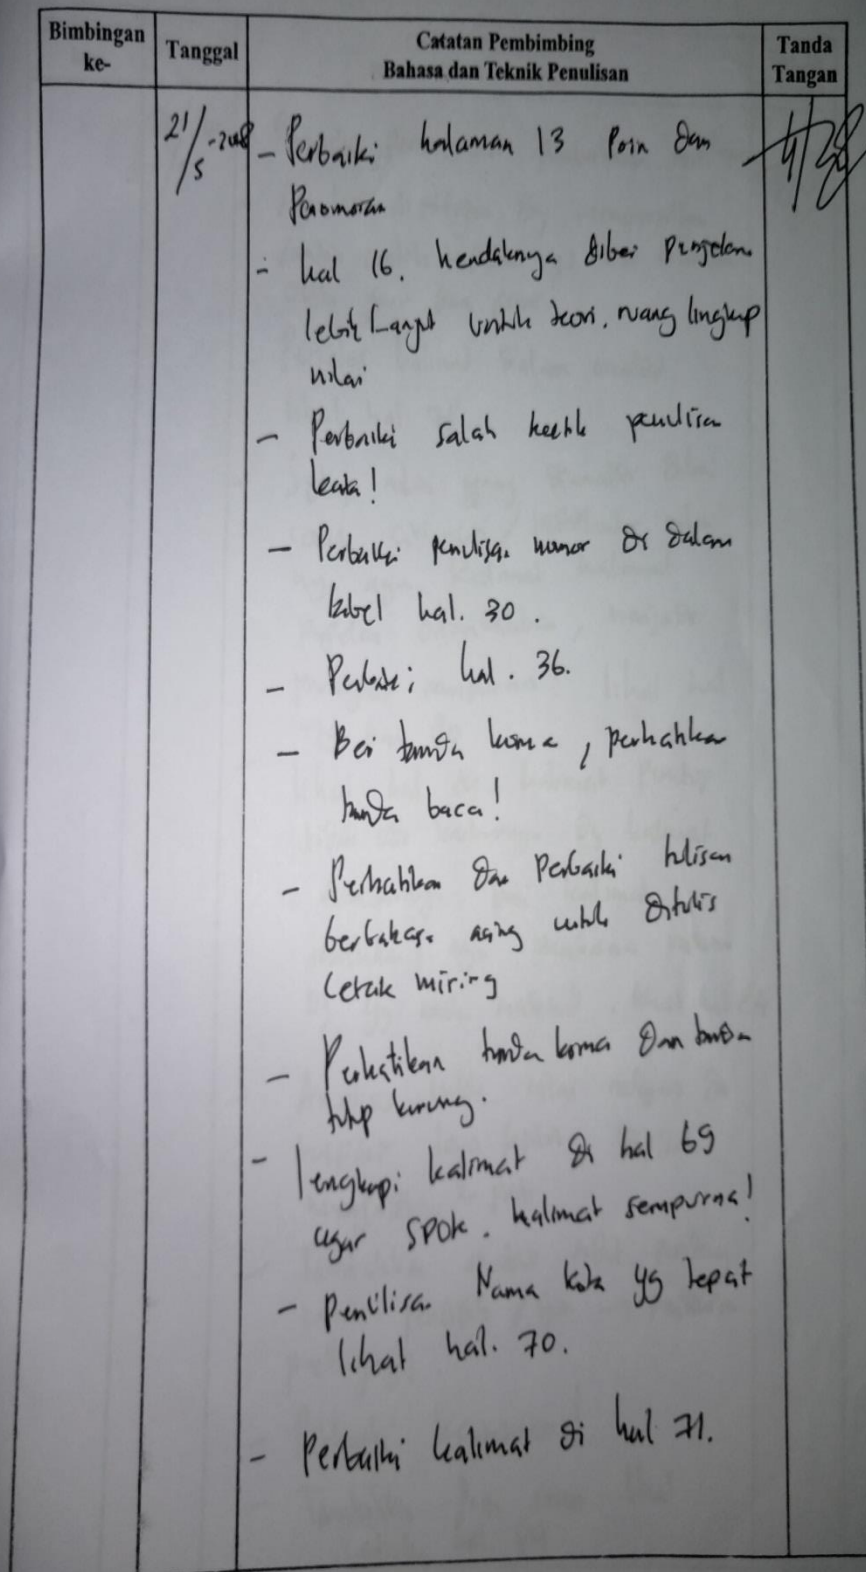 Bimbingan ke-
Tanggal
Catatan Pembimbing
Bahasa dan Teknik Penulisan
Tanda Tangan
21/5-2018
- Perbaiki halaman 13 Poin dan
Penomoran
- hal 16. hendaknya diberi penjelasan
lebih Lanjut untuk teori, ruang lingkup
nilai
- Perbaiki salah ketik penulisan
kata!
- Perbaiki penulisan nomor di dalam
tabel hal. 30.
- Perbaiki hal. 36.
- Beri tanda koma, perhatikan
tanda baca!
- Perhatikan dan Perbaiki tulisan
berbahasa asing untuk ditulis
Cetak miring
- Perhatikan tanda koma dan tanda
tutup kurung.
- lengkapi kalimat di hal 69
agar SPOK. kalimat sempurna!
- penulisan Nama kota yg tepat
lihat hal. 70.
- Perbaiki kalimat di hal 71.